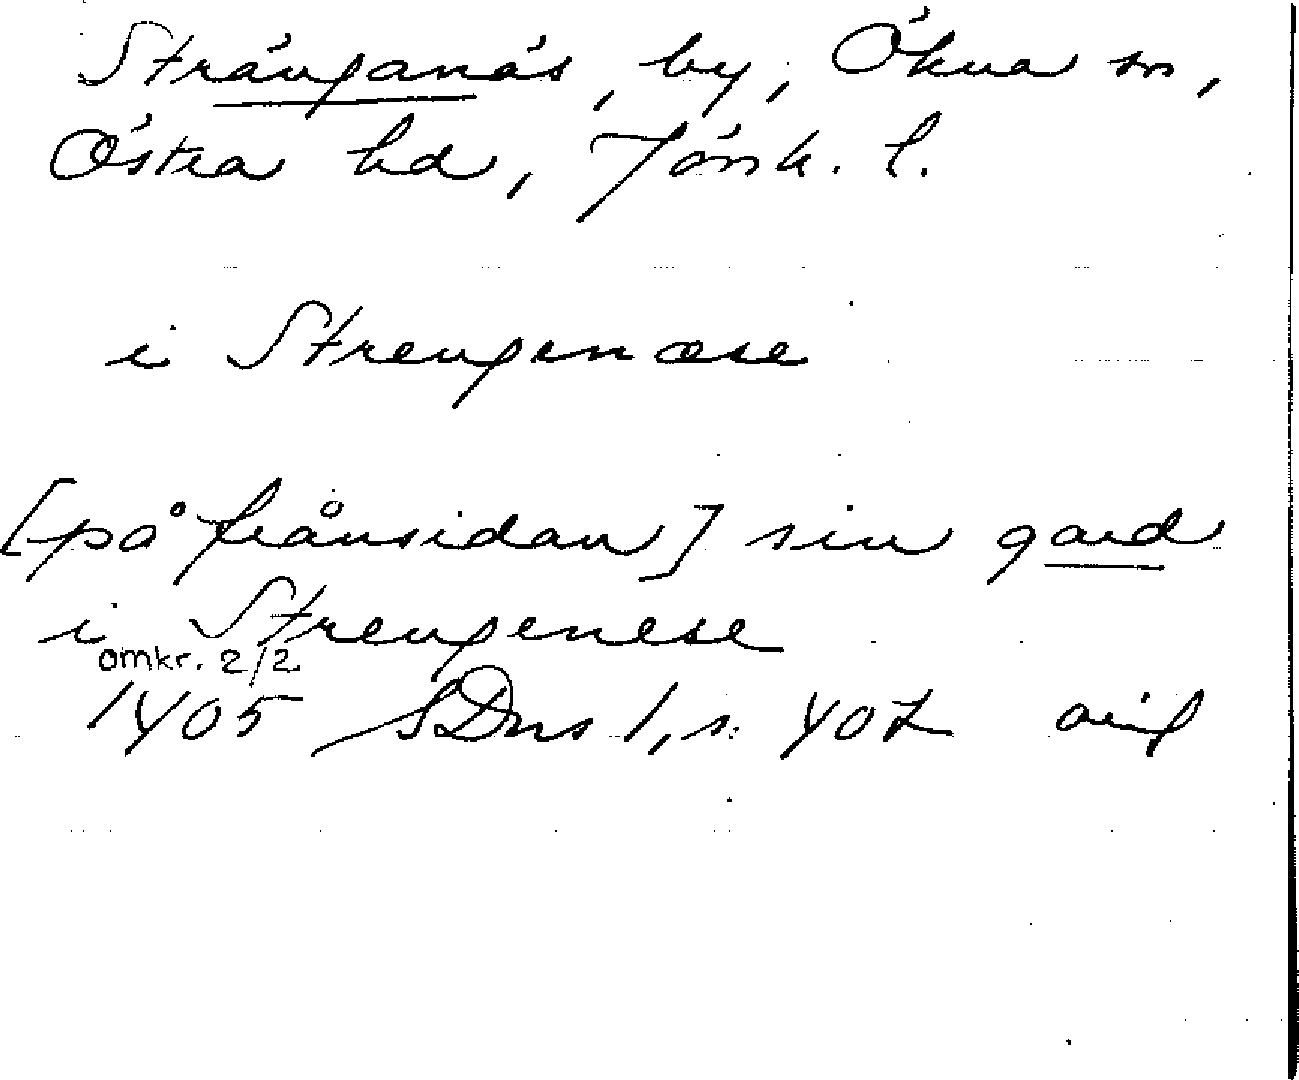 Stränganäs, by, Ökna sn,
Östra hd, Jönk. l.
i Strengenæse
[på frånsidan] sin gard
i Strengenese
omkr. 2/2
1405 SDns 1, s. 407 orig